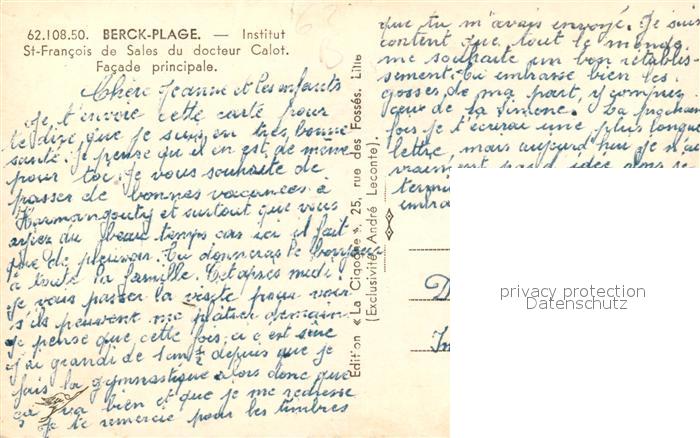 62.108.50. BERCK-PLAGE. — Institut
St-François de Sales du docteur Calot.
Façade principale.
Chère Jeanne et les enfants
Je t'envoie cette carte pour
te dire que je suis en très bonne
santé. Je pense qu'il en est de même
pour toi. Je vous souhaite de
passer de bonnes vacances à
et surtout que vous
ayiez du beau temps car ici il fait
que de pleuvoir. Tu donneras le bonjour
à toute la famille. Cet après midi
Je vais passer la visite pour voir
s'ils peuvent me plâtrer demain.
Je pense que cette fois, ci c'est sûre
J'ai grandi de 1cm ½ depuis que je
fais la gymnastique alors donc que
ça va bien et que je me redresse
Je te remercie pour les timbres
Edition « La Cigogne ». 25, rue des Fossés, Lille
(Exclusivité André Leconte).
que tu m'avais envoyé. Je suis
content que tout le monde
me souhaite un bon rétablis-
sement. Tu embrasse bien les
gosses de ma part, y compris
ceux de la Simone. La prochaine
fois je t'écrirai une plus longue
lettre, mais aujourd'hui je n'ai
vraim
term
embra
privacy protection
Datenschutz